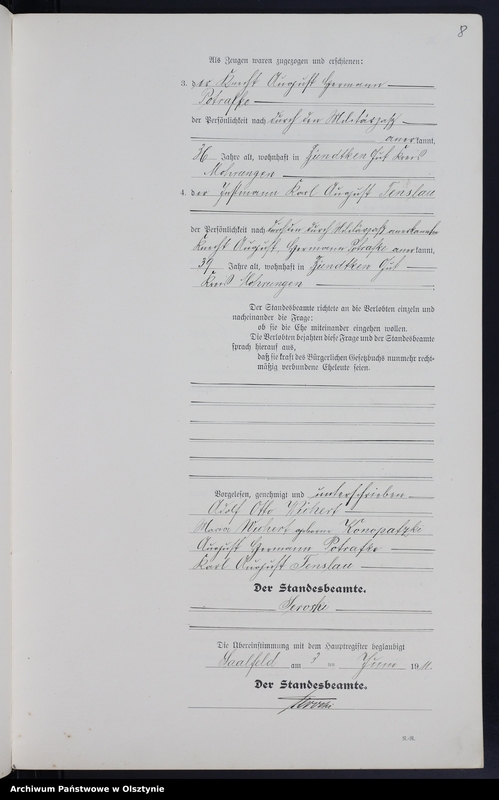 8
Als Zeugen waren zugezogen und erschienen:
3. der Knecht August Hermann
Potrafke
der Persönlichkeit nach durch den Militärpaß
anerkannt,
36 Jahre alt, wohnhaft in Zundtken Gut Kreis
Mohrungen
4. der Hofmann Karl August Tenslau
der Persönlichkeit nach durch den durch Militärpaß anerkannten
Knecht August Hermann Potrafke anerkannt,
39 Jahre alt, wohnhaft in Zundtken Gut
Kreis Mohrungen
Der Standesbeamte richtete an die Verlobten einzeln und
nacheinander die Frage:
ob sie die Ehe miteinander eingehen wollen.
Die Verlobten bejahten diese Frage und der Standesbeamte
sprach hierauf aus,
daß sie kraft des Bürgerlichen Gesetzbuchs nunmehr recht-
mäßig verbundene Eheleute seien.
Vorgelesen, genehmigt und unterschrieben
Adolf Otto Wichert
Wichert geborene Konopatzki
August Hermann Potrafke
Karl August Tenslau
Der Standesbeamte.
Die Übereinstimmung mit dem Hauptregister beglaubigt
Saalfeld am 2 ten Juni 1911.
Der Standesbeamte.
Archiwum Państwowe w Olsztynie